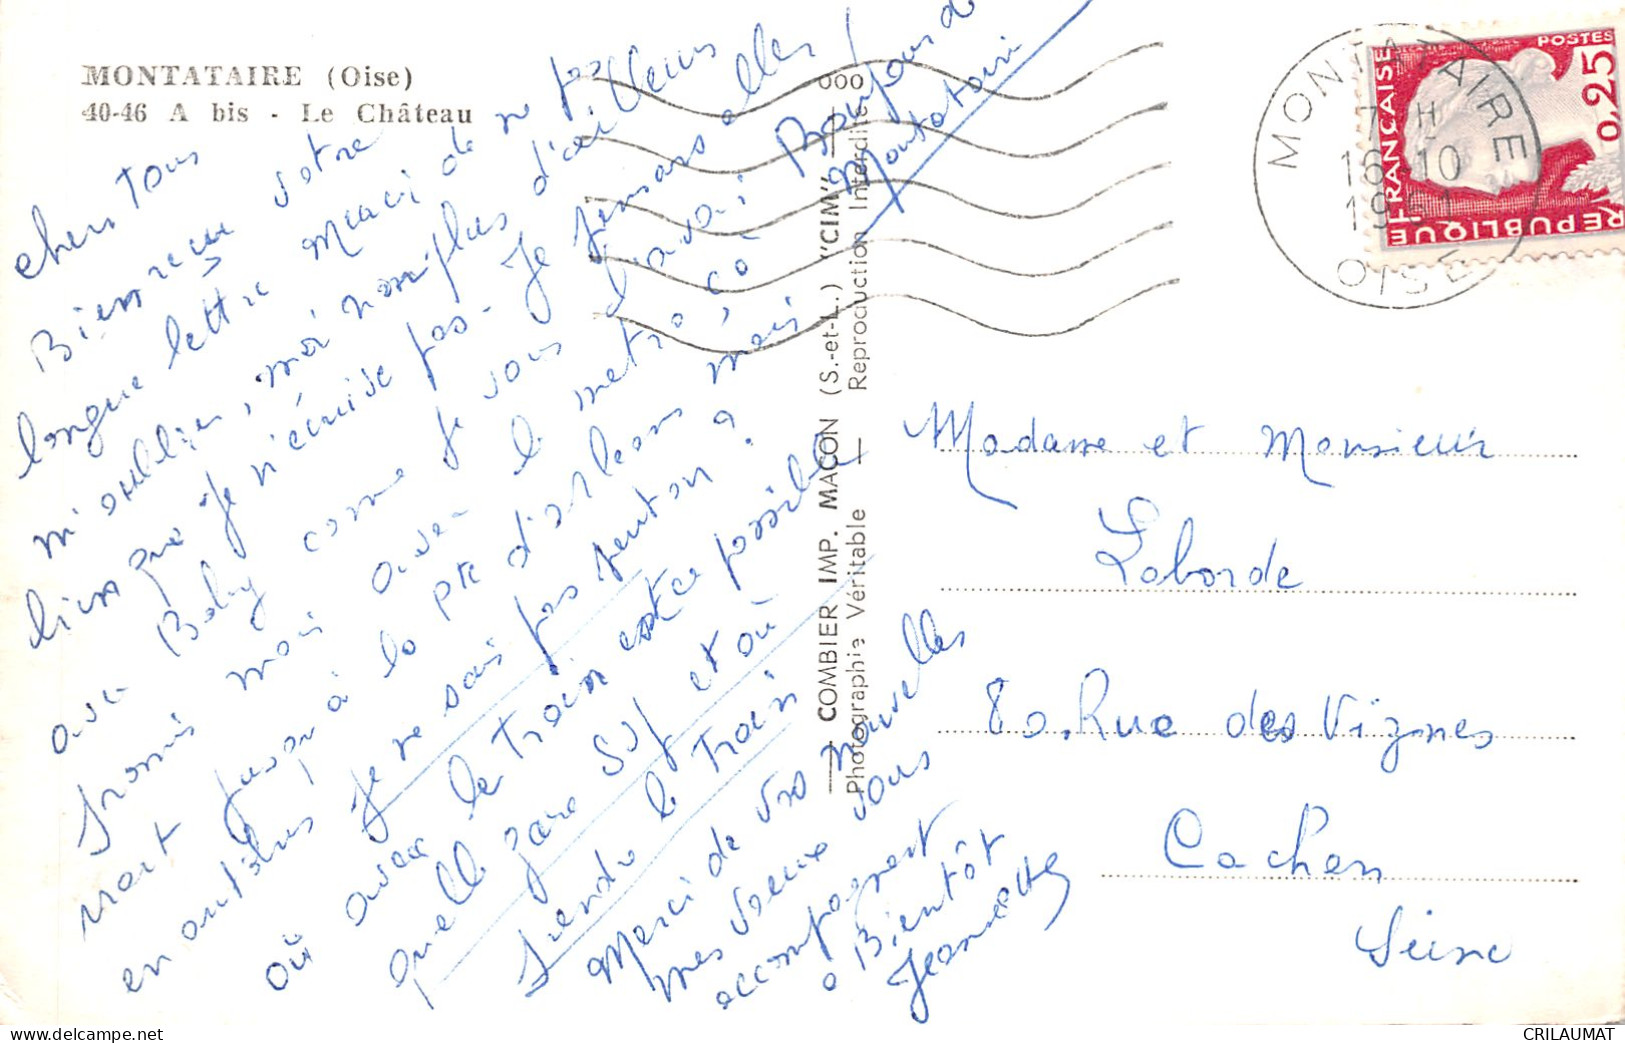 MONTATAIRE (Oise)
40-46 A bis - Le Château
chers Tous
Bien reçu votre
longue lettre merci de ne pas
m'oublier, moi non plus d'ailleurs
bien que je n'écrive pas - Je pense aller
avec Baby comme je vous l'avai
promis mais avec le metro, ça
vont jusqu'à la pte d'orleans mais
en autobus je ne sais pas peut on ?
où avec le train est ce possible
quelle gare SVP et où
prendre le Train
Merci de vos nouvelles
mes voeux vous
accompagnent
a Bientôt
Jeannette
Bonjour de
Montataire
COMBIER IMP. MACON (S.-et-L.) "CIM"
Photographie Véritable — Reproduction Interdite
000
MONTATAIRE
7 H
16-10
1961
OISE
REPUBLIQUE FRANÇAISE
POSTES
0,25
Madame et Monsieur
Laborde
80. Rue des Vignes
Cachan
Seine
CRILAUMAT
www.delcampe.net